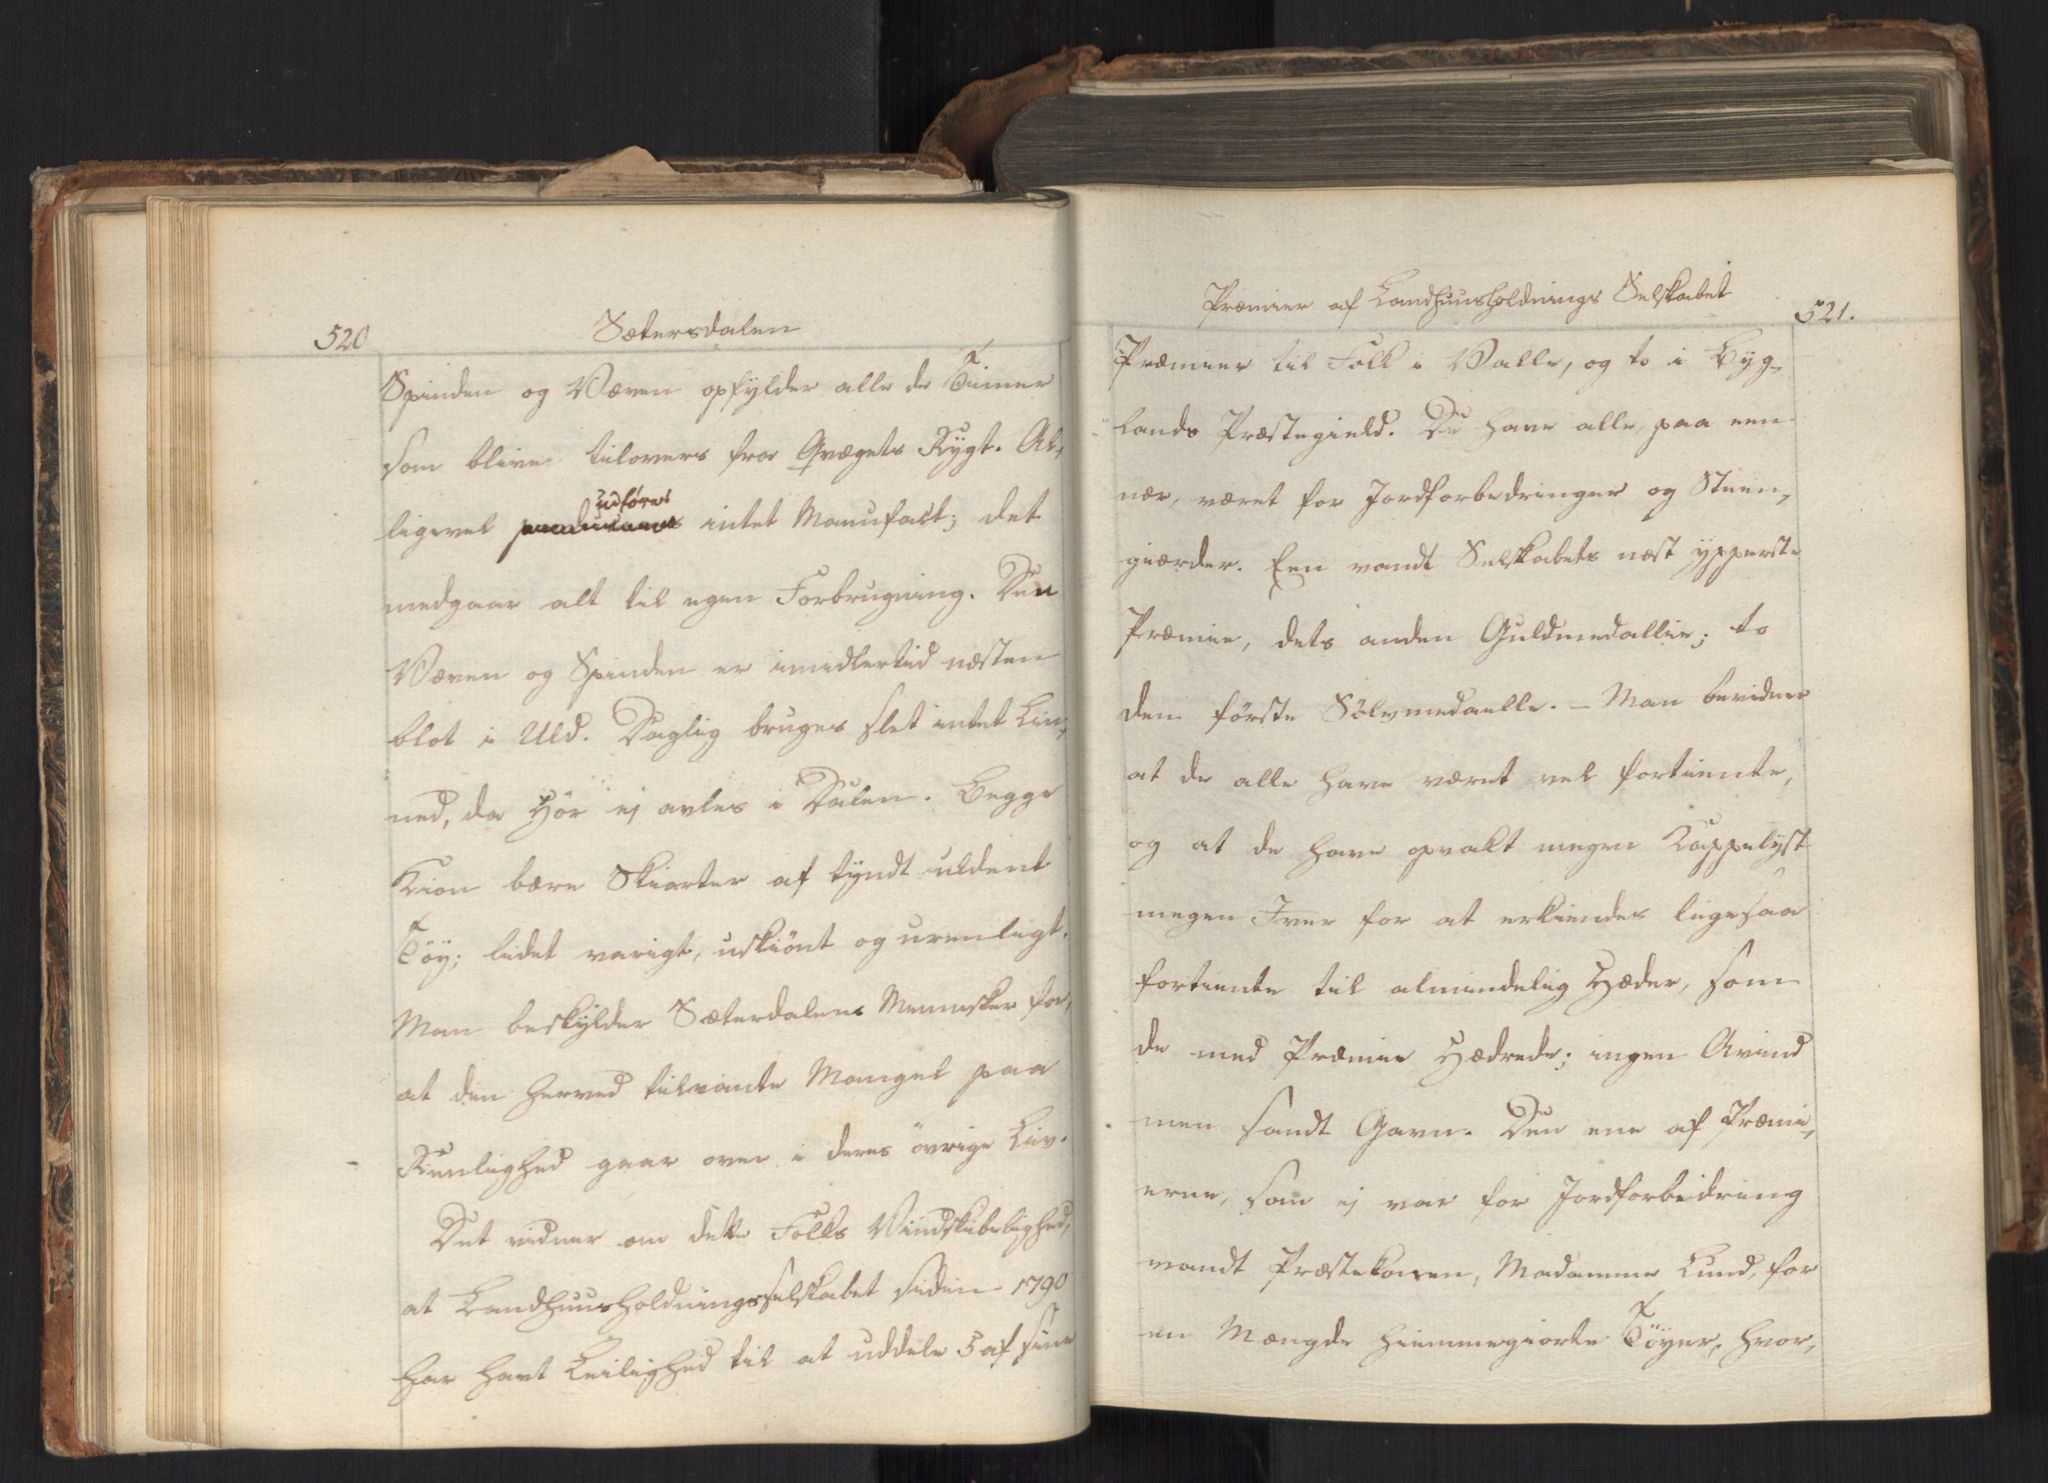 520
Sætersdalen
Spinden og Væven opfylder alle de Timer
som blive tilovers fra Qvægets Rygt. Al-
ligevel udføres intet Manufact; det
medgaar alt til egen Forbrugning. Den
Væven og Spinden er imidlertid næsten
blot i Uld. Daglig bruges slet intet Lin-
ned, da Hör ej avles i Dalen. Begge
Kiøn bære Skiorter af tyndt uldent
Töy; lidet varigt, uskiönt og urenligt.
Man beskylder Sæterdalens Mennesker for,
at den herved tilvante Mangel paa
Reenlighed gaar over i deres övrige Liv.
Det vidner om dette Folks Vindskibelighed,
at Landhuusholdningsselskabet siden 1790
har havt Leilighed til at uddele 5 af sine
Præmier af Landhuusholdnings Selskabet
521.
Præmier til Folk i Valle, og to i Byg-
lands Præstegield. De have alle, paa een
nær, været for Jordforbedringer og Steen-
giærder. Een vandt Selskabets næst ypperste
Præmie, dets anden Guldmedallie; to
dem förste Sölvmedaelle. – Man bevidner
at de alle have været vel fortiente,
og at de have opvakt megen Kappelyst
megen Iver for at erkiendes ligesaa
fortiente til almindelig Hæder, som
de med Præmie Hædrede; ingen Avind
men sandt Gavn. Den ene af Præmi-
erne, som ej var for Jordforbedring
vandt Præstekonen, Madamme Lund, for
en Mængde hiemmegiorte Töyer, hvor-